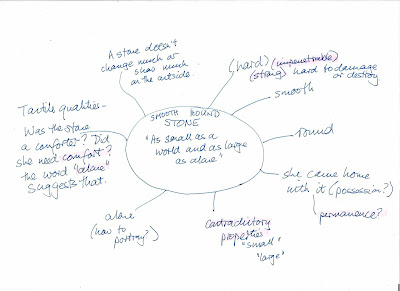 A stone doesn't
change much or
show much
on the outside.
(hard) (impenetrable)
(strong) hard to damage
or destroy
smooth
round
she came home
with it (possession?)
permanence?
contradictory
properties
"small"
"large"
alone
(how to
portray?)
Tactile qualities -
Was the stone
a comforter? Did
she need comfort?
the word "alone"
suggests that.
SMOOTH ROUND
STONE
"As small as a
world and as large
as alone"